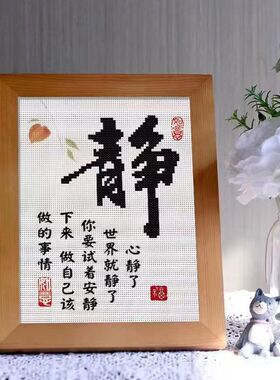 静
心静了
世界就静了
你要试着安静
下来 做自己该
做的事情
福